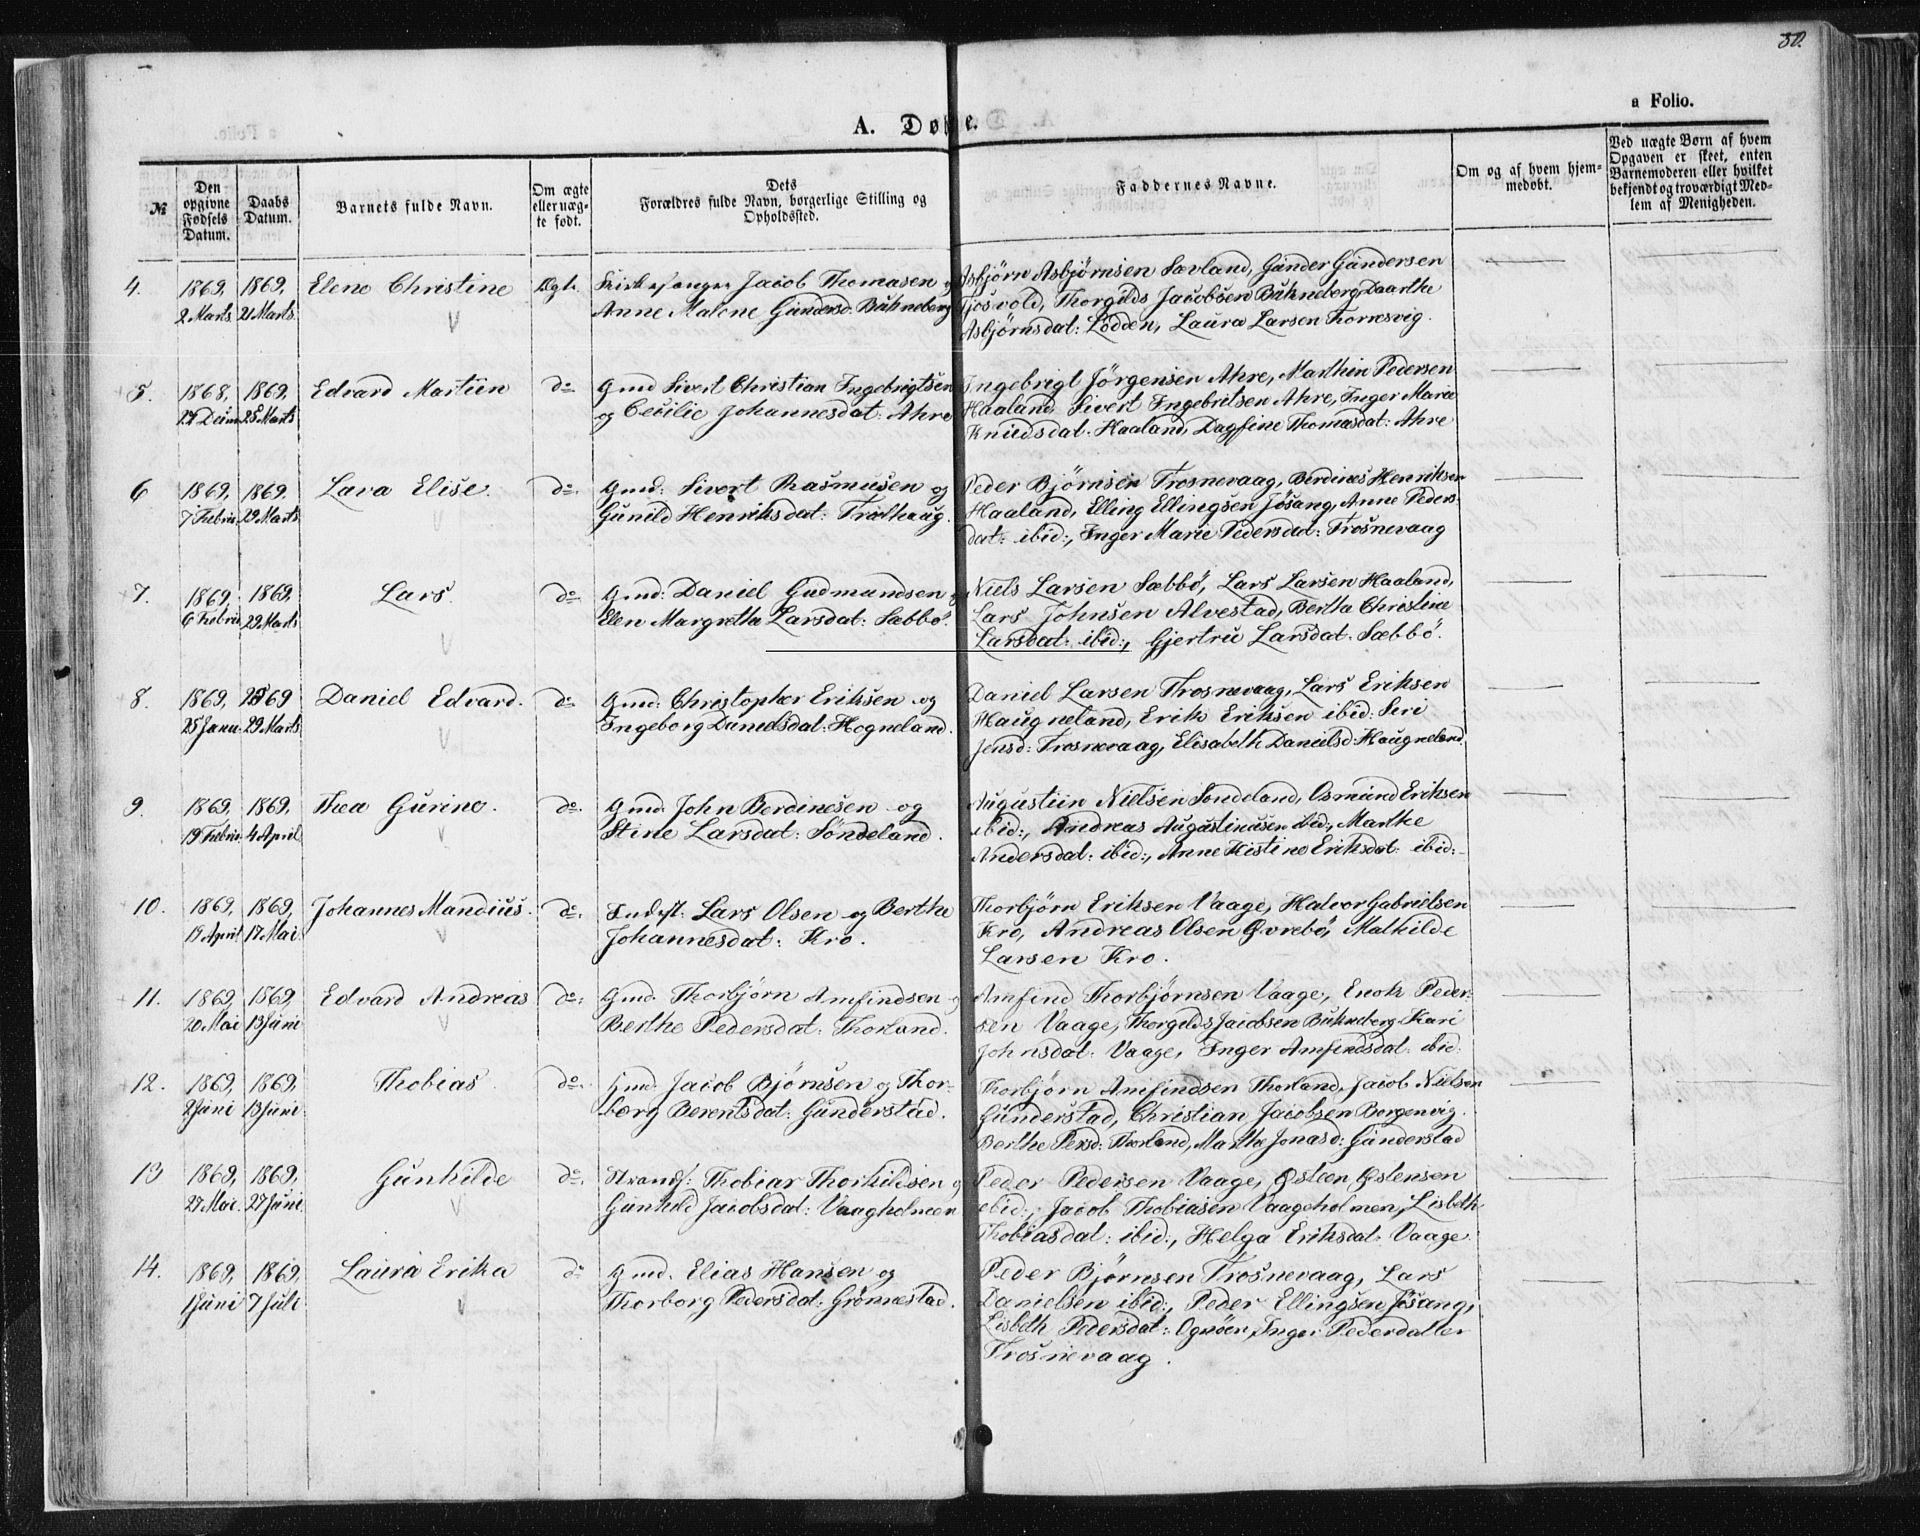 50.
a Folio.
A. Døbte.
№
Den opgivne Fødsels Datum.
Daabs Datum.
Barnets fulde Navn.
Om ægte eller uægte født.
Dets
Forældres fulde Navn, borgerlige Stilling og Opholdssted.
Faddernes Navne.
Om og af hvem hjemmedøbt.
Ved uægte Børn af hvem Opgaven er skeet, enten Barnemoderen eller hvilket bekjendt og troværdigt Medlem af Menigheden.
4. 1869, 1869, Elene Christine Ægte. Kirkesanger Jacob Thomasen og Asbjørn Asbjørnsen Sævland, Günder Gündersen
2 Marts. 21 Marts Anne Malene Gündersd: Bükneberg Tjosvold, Thorgilds Jacobsen Bükneberg, Daarthe
Asbjörnsdat: Lodden, Laura Larsen Thornesvig.
5. 1868, 1869, Edvard Martiin do Gmd Sivert Christian Ingebrigtsen Ingebrigt Jörgensen Ahre, Marthin Pedersen
25 Marts og Cecilie Johannesdat: Ahre Haaland, Sivert Ingebritsen Ahre, Inger Marie
Knüdsdat. Haaland, Dagfine Thomasdat: Ahre
6 1869, 1869. Lava Elise. do. Gmd: Sivert Rasmusen og Peder Bjørnsen Trosnevaag, Berdines Henriksen
7 Febru 29 Marts Gunild Henriksdat: Trolhaug. Haaland, Elling Ellingsen Jösang, Anne Peders-
dat: ibid:, Inger Marie Pedersdat: Trosnevaag
7. 1869, 1869, Lars. do Gmd: Daniel Gudmundsen og Niels Larsen Sæbbö, Lars Larsen Haaland,
6 Febru 29 Marts Elen Margretha Larsdat: Sæbbö. Lars Johnsen Alvestad, Bertha Christine
Larsdat: ibid:, Gjertrü Larsdat. Sæbbö.
8. 1869, 1869 Daniel Edvard. do Gmd: Christopher Eriksen og Daniel Larsen Throsnevaag, Lars Eriksen
25 Janu. 29 Marts Ingeborg Danielsdat: Hogneland. Haugneland, Erik Eriksen ibid: Seri
Jensd: Trosnevaag, Elisabeth Danielsd: Haugneland
9. 1869, 1869, Thea Gurine. do. Gmd. John Berdinesen og Augustiin Nielsen Sondeland, Osmünd Eriksen
19 Febru 4 April Stine Larsdat: Söndeland. ibid:, Andreas Augustinusen ibid:, Marthe
Andersdat: ibid:, Anne Kistine Eriksdat: ibid:
10. 1869, 1869, Johannes Mandius. do. Indst: Lars Olsen og Berthe Thorbjörn Eriksen Vaage, Halvor Gabrielsen
19 April 17 Mai. Johannesdat: Kro. Kro, Andreas Olsen Øvrebö, Mathilde
Larsen Kro.
11. 1869, 1869, Edvard Andreas do: Gmd. Thorbjörn Amfindsen og Amfind Thorbjørnsen Vaage, Enok Peder-
20 Mai 13 Jüni Berthe Pedersdat: Thorland. sen Vaage, Thorgilds Jacobsen Bükneberg, Kari
Johnsdat: Vaage, Inger Amfindsdat: ibid:
12. 1869, 1869, Thobias. do. Gmd: Jacob Bjørnsen og Thor- Thorbjörn Amfindsen Thorland, Jacob Nielsen
2 Jüni 13 Jüni borg Berentsdat: Günderstad. Günderstad, Christian Jacobsen Borgenvig.
Berthe Persd: Thorland, Marthe Jonasd: Günderstad
13 1869, 1869, Günhilde do. Strands: Thobias Thorkildsen og Peder Pedersen Vaage, Østeen Østensen
27 Mai. 27 Jüni Günhild Jacobsdat: Vaagholmen ibid:, Jacob Thobiasen Vaageholmen, Lisbeth
Thobiasdat: ibid:, Helga Eriksdat: Vaage
14. 1869, 1869, Laura Erika do Gmd. Elias Hansen og Peder Bjørnsen Trosnevaag, Lars
1 Jüni 7 Juli Thorborg Pedersdat: Grönnestad. Danielsen ibid:, Peder Ellingsen Jösang,
Lisbeth Pedersdat: Ognöen, Inger Pederdatter
Trosnevaag.